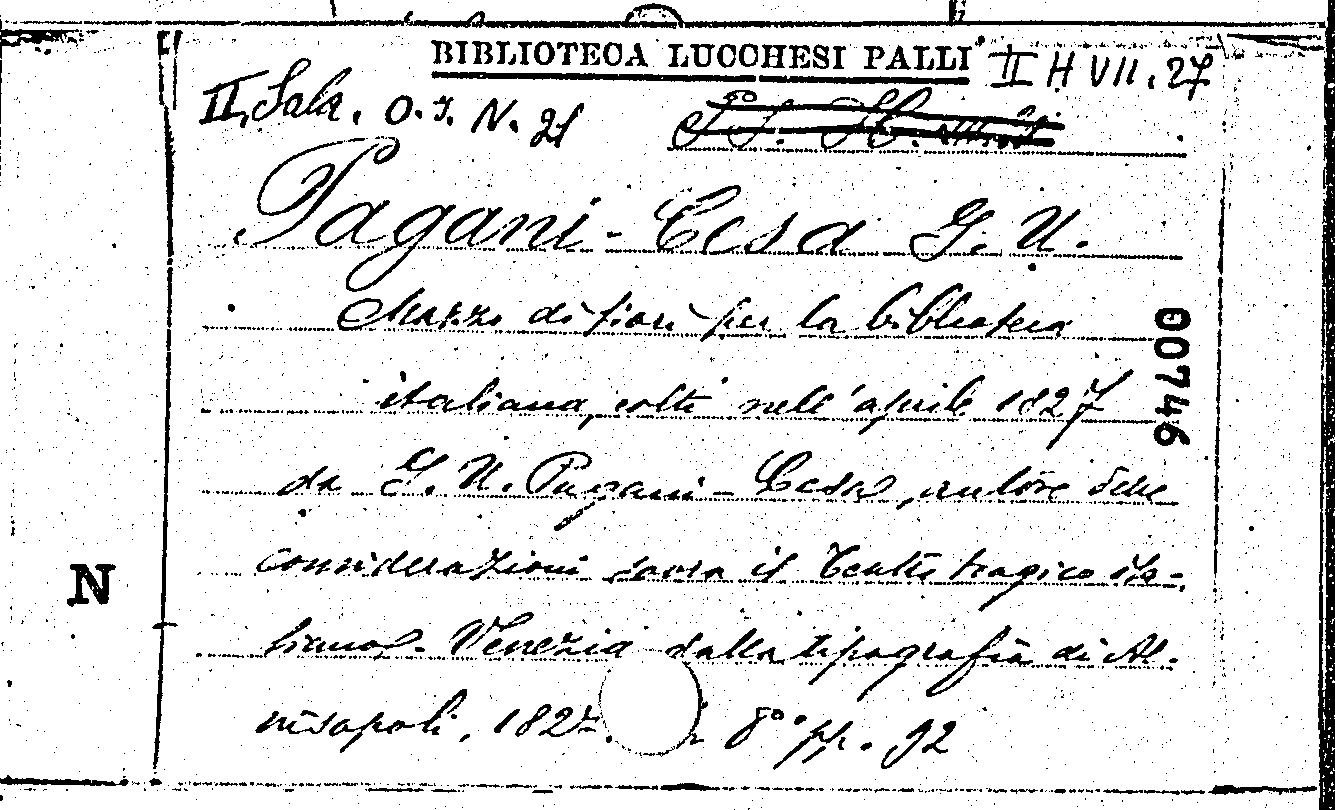 BIBLIOTECA LUCCHESI PALLI
II H VII. 27
II, Sala. O. I. N. 21
Pagani-Cesa G. U.
Mazzo di fiori per la biblioteca
italiana, colti nell'aprile 1827
da G. U. Pagani-Cesa, autore delle
considerazioni sovra il Teatro tragico ita-
liano. Venezia dalla tipografia di Al-
visopoli, 1827. 8° pp. 92
00746
N